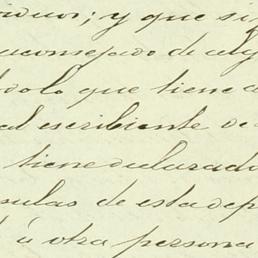 iduos; y que si
aconsejado de alg
dolo que tiene
al escribiente de
tiene declarado
sulas de esta dep
á otra persona